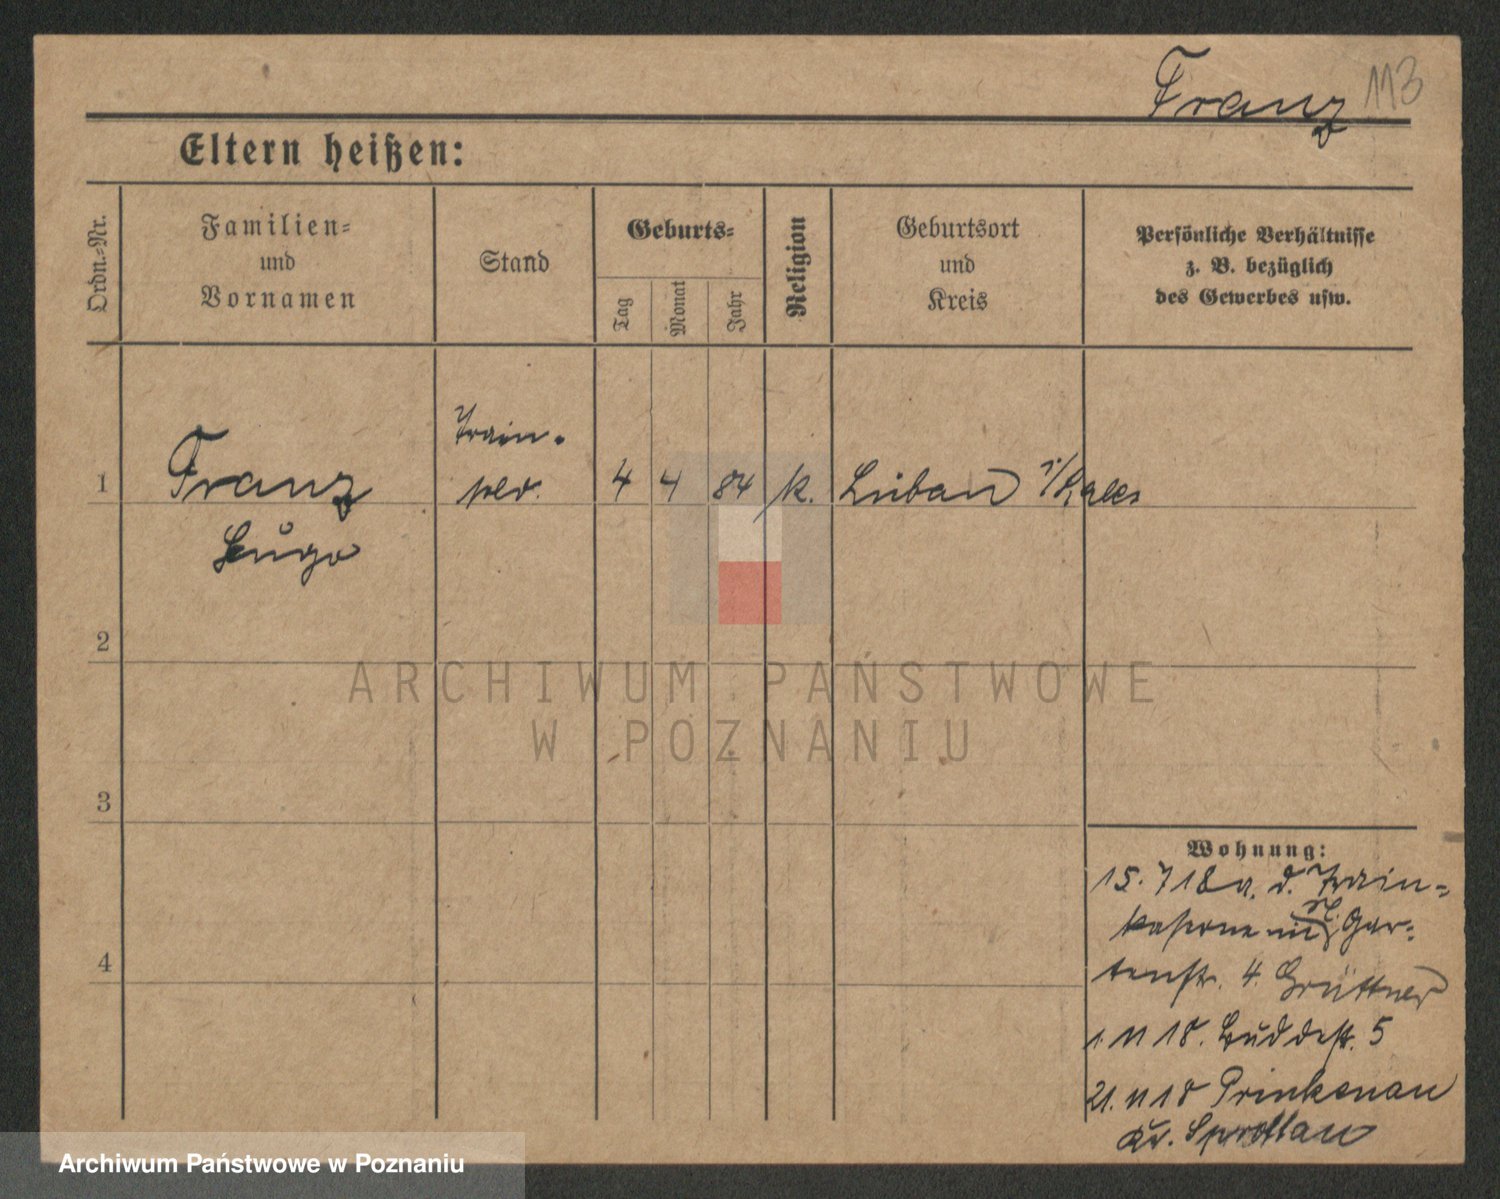 Franz 113
Eltern heißen:
Ordn.-Nr.
Familien-
und
Vornamen
Stand
Geburts-
Tag
Monat
Jahr
Religion
Geburtsort
und
Kreis
Persönliche Verhältnisse
z. B. bezüglich
des Gewerbes usw.
Train-
1 Franz 4 4 84 k. Lüban
Hugo
2
3
4
Wohnung:
15. 7 18 a. d. Train-
kaserne Gar-
tenstr. 4. Grüttner
1. 11 18. Buddestr. 5
21. 11 18 Prinkenau
Kr. Sprottau
ARCHIWUM PAŃSTWOWE
W POZNANIU
Archiwum Państwowe w Poznaniu